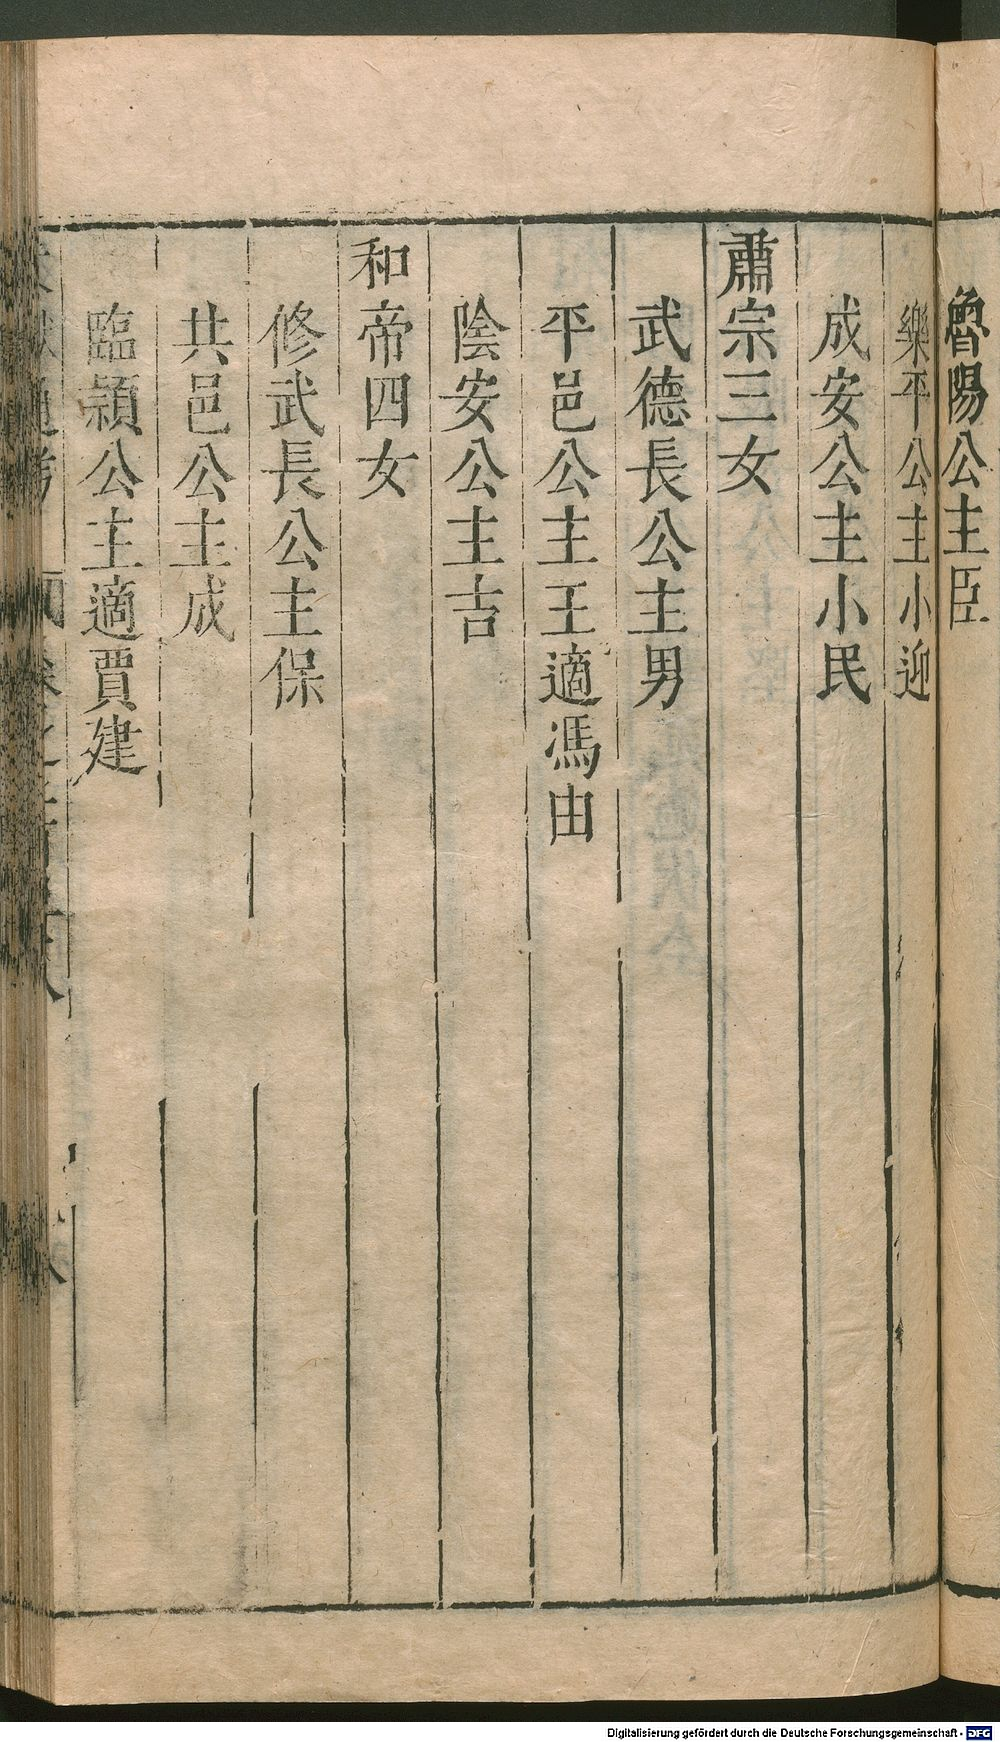 魯陽公主臣
樂平公主小迎
成安公主小民
肅宗三女
武德長公主男
平邑公主王適馮由
陰安公主吉
和帝四女
修武長公主保
共邑公主成
臨潁公主適賈建
Digitalisierung gefördert durch die Deutsche Forschungsgemeinschaft - DFG